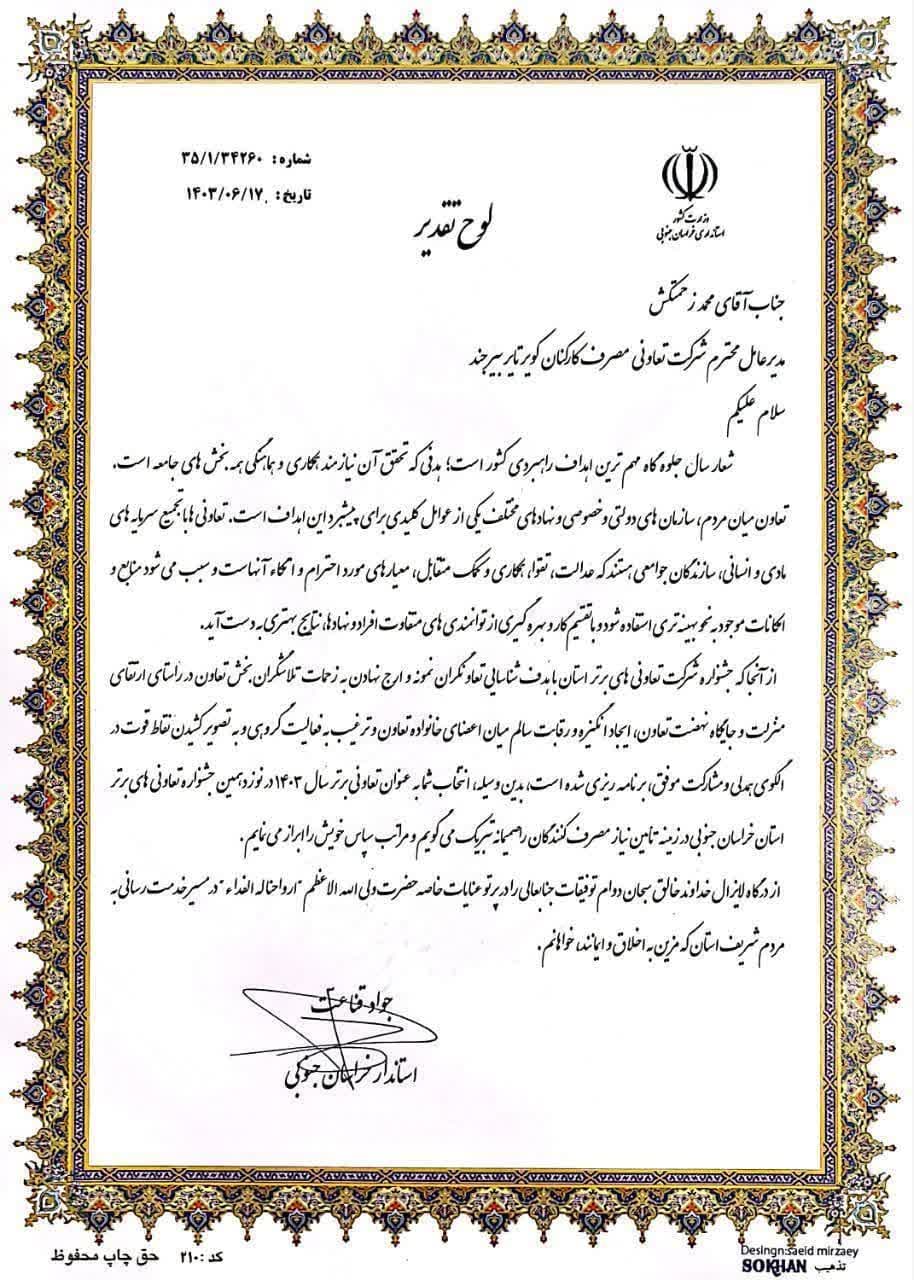 شماره: ۳۵/۱/۳۴۲۶۰
تاریخ: ۱۴۰۳/۰۶/۱۷
وزارت کشور
استانداری خراسان جنوبی
لوح تقدیر
جناب آقای محمد زحمتکش
مدیرعامل محترم شرکت تعاونی مصرف کارکنان کویر تایر بیرجند
سلام علیکم
شعار سال جلوه گاه مهم ترین اهداف راهبردی کشور است؛ هدفی که تحقق آن نیازمند همکاری و هماهنگی همه بخش های جامعه است.
تعاون میان مردم، سازمان های دولتی و خصوصی و نهادهای مختلف یکی از عوامل کلیدی برای پیشبرد این اهداف است. تعاونی ها با تجمیع سرمایه های
مادی و انسانی، سازندگان جوامعی هستند که عدالت، تقوا، همکاری و کمک متقابل، معیارهای مورد احترام و اتکاء آنهاست و سبب می شود منابع و
امکانات موجود به نحو بهینه تری استفاده شود و با تقسیم کار و بهره گیری از توانمندی های متفاوت افراد و نهادها، نتایج بهتری به دست آید.
از آنجا که جشنواره شرکت تعاونی های برتر استان با هدف شناسایی تعاونگران نمونه و ارج نهادن به زحمات تلاشگران بخش تعاون در راستای ارتقای
منزلت و جایگاه نهضت تعاون، ایجاد انگیزه و رقابت سالم میان اعضای خانواده تعاون و ترغیب به فعالیت گروهی و به تصویر کشیدن نقاط قوت در
الگوی همدلی و مشارکت موفق، برنامه ریزی شده است، بدین وسیله، انتخاب شما به عنوان تعاونی برتر سال ۱۴۰۳ در نوزدهمین جشنواره تعاونی های برتر
استان خراسان جنوبی در زمینه تامین نیاز مصرف کنندگان را صمیمانه تبریک می گویم و مراتب سپاس خویش را ابراز می نمایم.
از درگاه لایزال خداوند خالق سبحان دوام توفیقات جنابعالی را در پرتو عنایات خاصه حضرت ولی الله الاعظم "ارواحناله الفداء" در مسیر خدمت رسانی به
مردم شریف استان که مزین به اخلاق و ایمانند، خواهانم.
جواد قناعت
استاندار خراسان جنوبی
کد: ۲۱۰ حق چاپ محفوظ
Desingn:saeid mirzaey
تذهیب SOKHAN